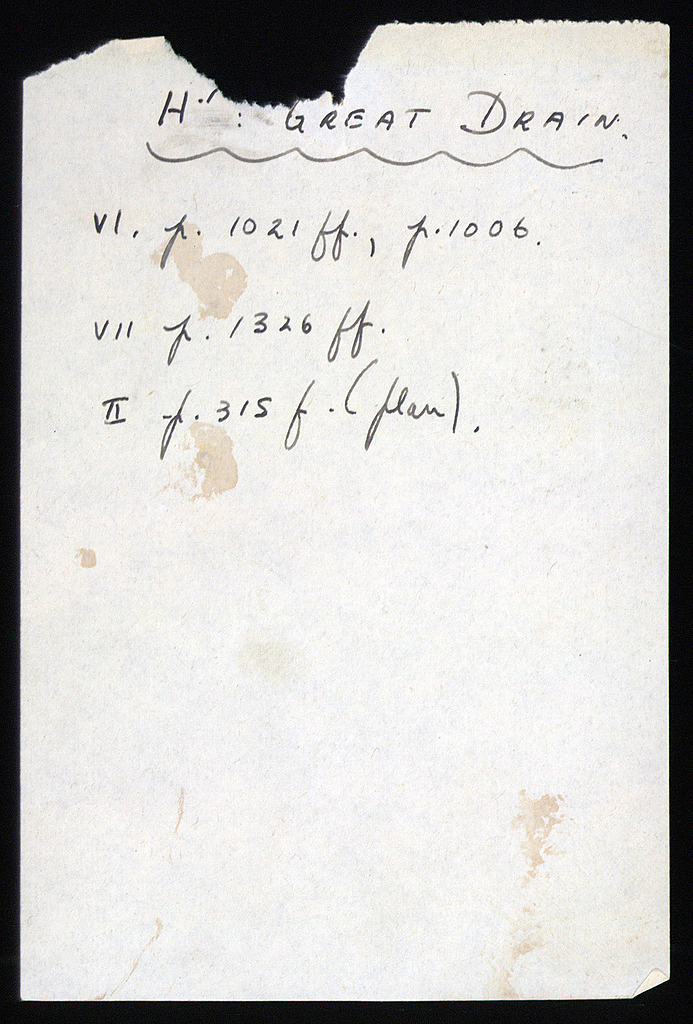 H": GREAT DRAIN.
VI. p. 1021 ff., p. 1006.
VII p. 1326 ff.
II p. 315 f. (plan).